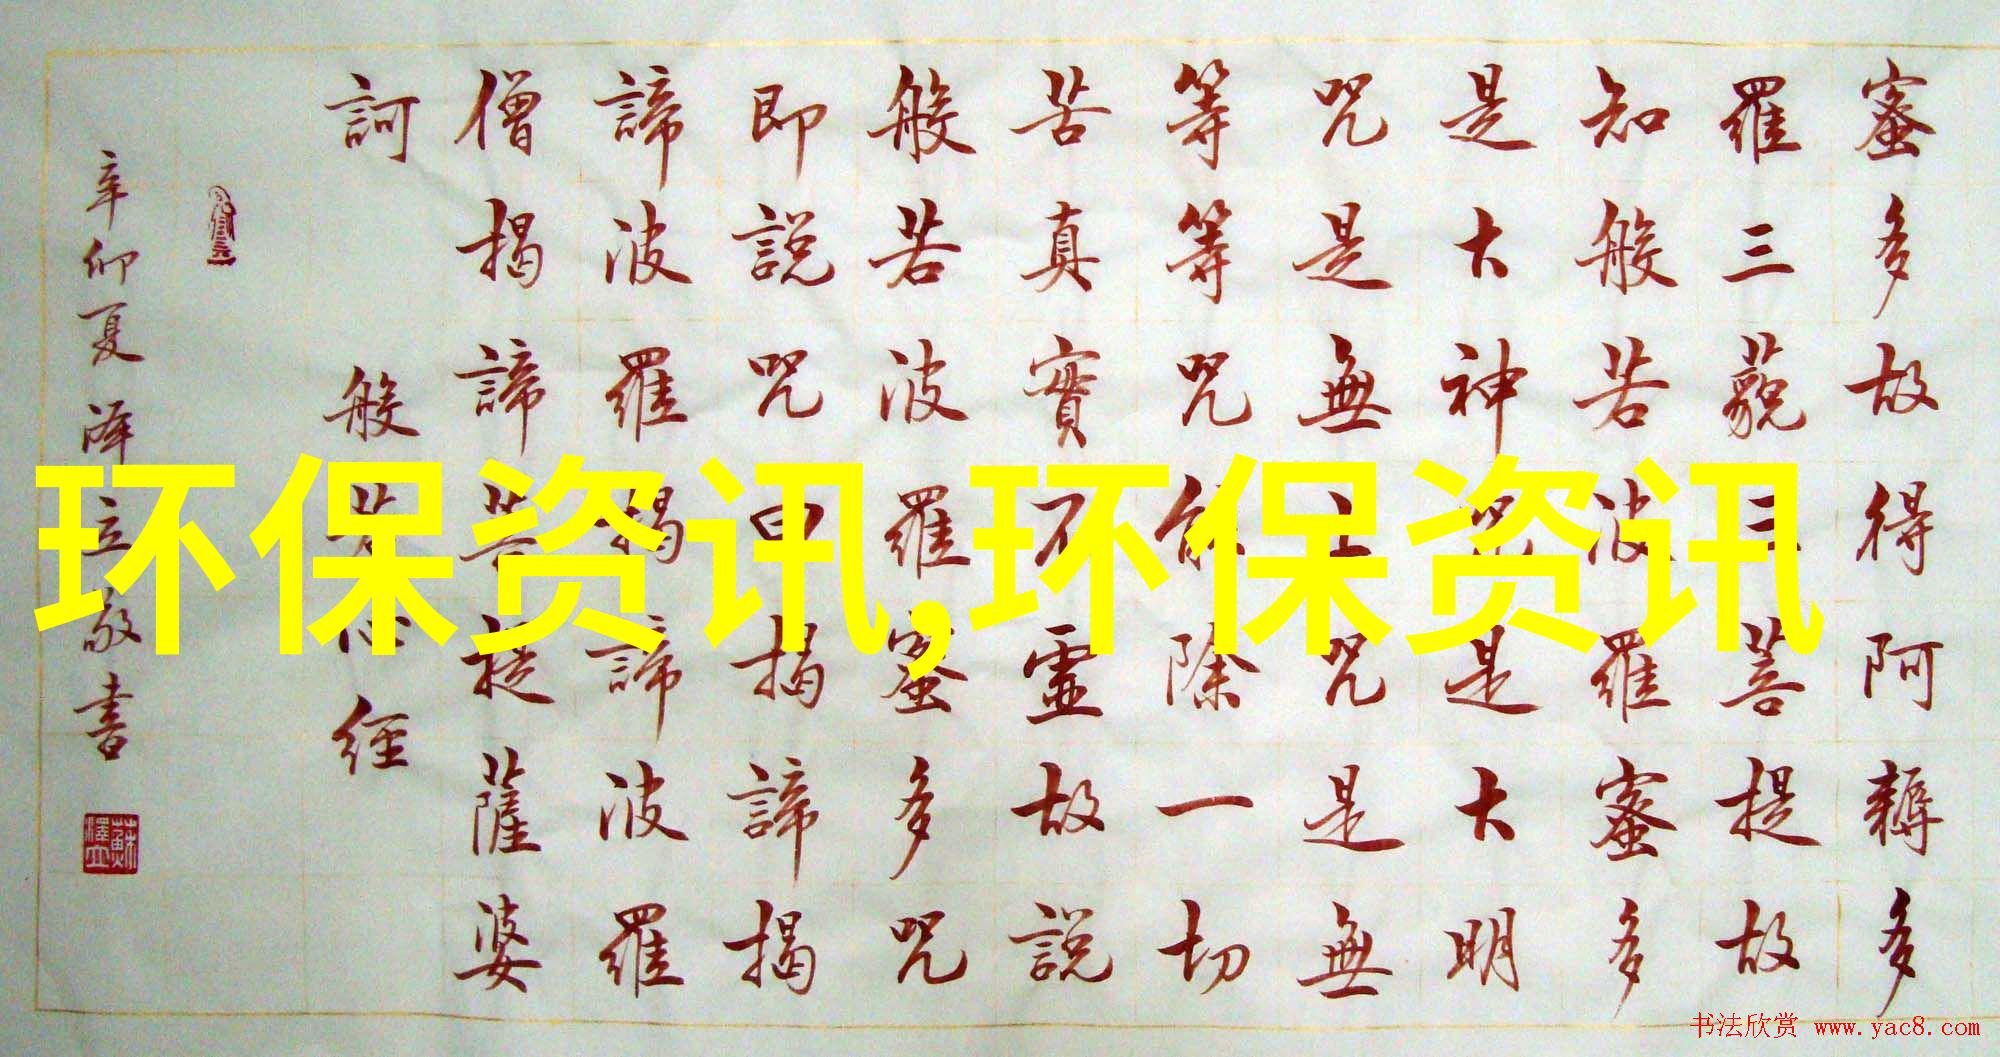 蜜多故得阿耨多
羅三藐三菩提故
知般若波羅蜜多
是大神咒是大明
咒是無上咒是無
等等咒能除一切
苦真實不虛故說
般若波羅蜜多咒
即說咒曰揭諦揭
諦波羅揭諦波羅
僧揭諦菩提薩婆
訶 般若心経
辛卯夏澤立敬書
蘇澤立
环保资讯,环保资讯
书法欣赏 www.yac8.com